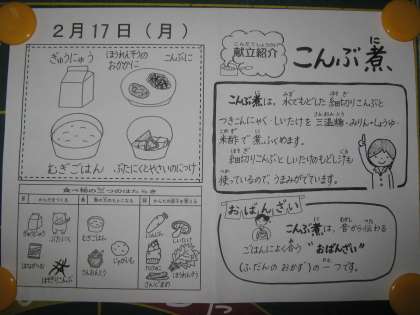 2月17日（月）
ぎゅうにゅう
ほうれんそうの
おかかに
こんぶに
むぎごはん
ぶたにくとやさいのにつけ
食べ物の三つのはたらき
こんだてしょうかい
献立紹介
こんぶ煮
こんぶ煮は、水でもどした細切りこんぶと
つきこんにゃく、しいたけを三温糖・みりん・しょうゆ・
米酢で煮ふくめます。
細切りこんぶとしいたけのもどし汁も
使っているので、うまみがでています。
おばんざい
こんぶ煮は、昔から伝わる
ごはんによく合う“おばんざい”
(ふだんのおかず)の一つです。